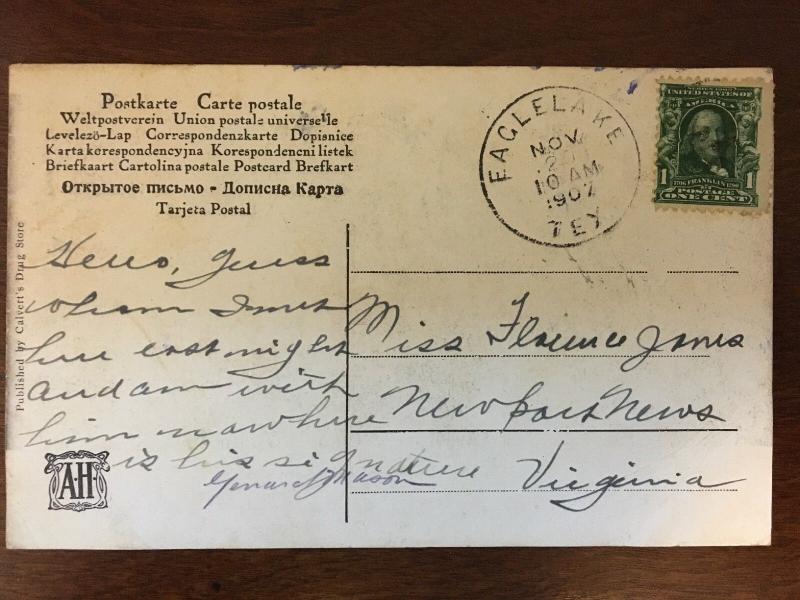 Postkarte Carte postale
Weltpostverein Union postale universelle
Levelező-Lap Correspondenzkarte Dopisnice
Karta korespondencyjna Korespondencni listek
Briefkaart Cartolina postale Postcard Brefkart
Открытое письмо - Дописна Карта
Tarjeta Postal
EAGLELAKE
NOV
10 AM
1907
TEX
SERIES 1902
UNITED STATES OF AMERICA
1706 FRANKLIN 1790
1 POSTAGE 1
ONE CENT
Published by Calvert's Drug Store
Hello, guess
whom I met
here last night
and am with
him now here
is his signature
Mason
Miss Florence Jones
Newport News
Virginia
A·H